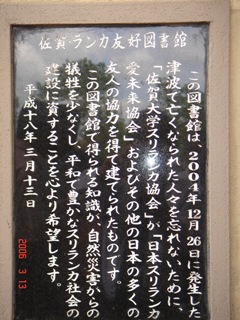 佐賀ランカ友好図書館
この図書館は、2004年12月26日に発生した
津波で亡くなられた人々を忘れないために、
「佐賀大学スリランカ協会」が「日本スリランカ
愛未来協会」およびその他の日本の多くの
友人の協力を得て建てられたものです。
この図書館で得られる知識が、自然災害からの
犠牲を少なくし、平和で豊かなスリランカ社会の
建設に資することを心より希望します。
平成十八年三月十三日
2006 3 13